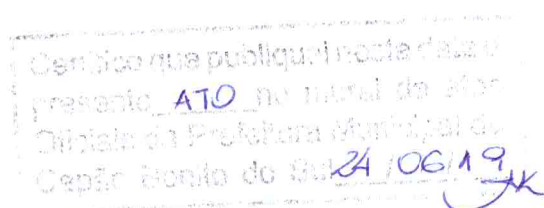 Certifico que publiquei nesta data o
presente ATO no mural de Atos
Oficiais da Prefeitura Municipal de
Capão Bonito do Sul 24/06/19